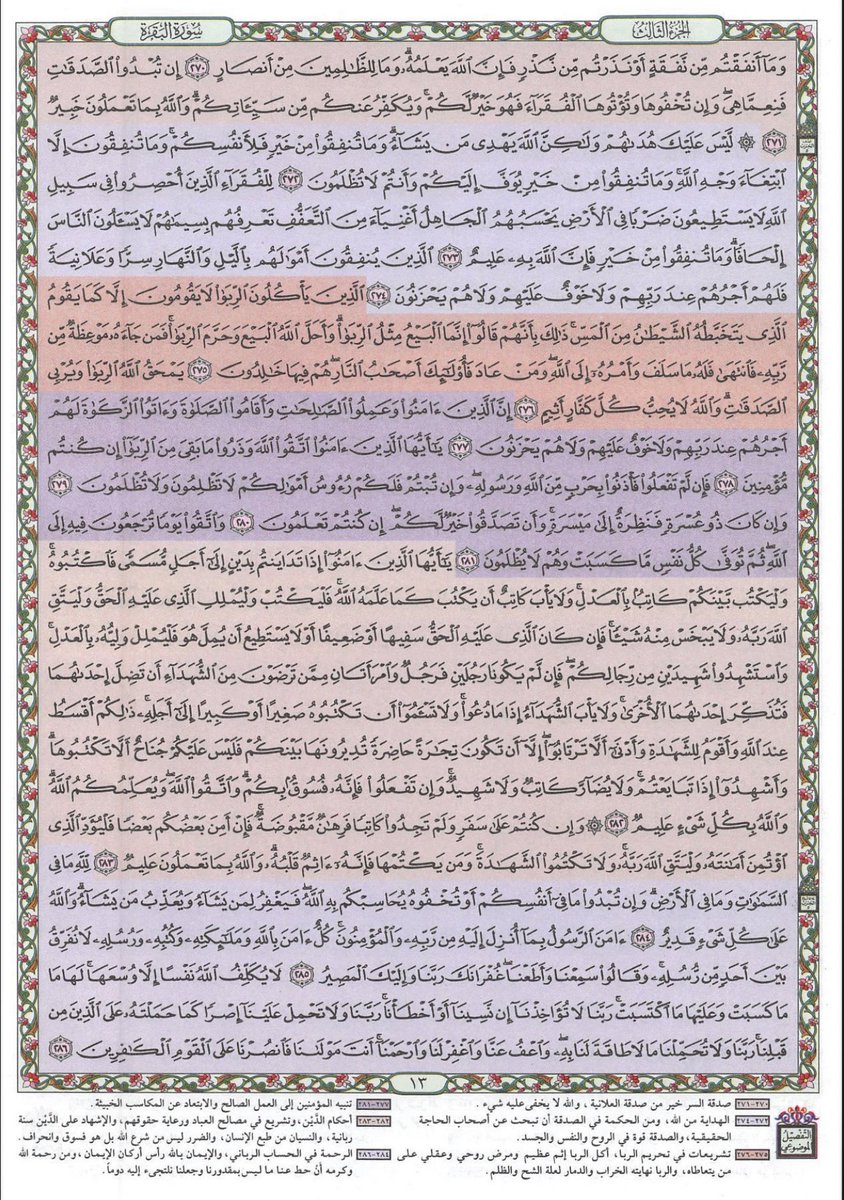 الجزء الثالث
سورة البقرة
وَمَآ أَنفَقۡتُم مِّن نَّفَقَةٍ أَوۡ نَذَرۡتُم مِّن نَّذۡرٖ فَإِنَّ ٱللَّهَ يَعۡلَمُهُۥۗ وَمَا لِلظَّٰلِمِينَ مِنۡ أَنصَارٍ ٢٧٠ إِن تُبۡدُواْ ٱلصَّدَقَٰتِ
فَنِعِمَّا هِيَۖ وَإِن تُخۡفُوهَا وَتُؤۡتُوهَا ٱلۡفُقَرَآءَ فَهُوَ خَيۡرٞ لَّكُمۡۚ وَيُكَفِّرُ عَنكُم مِّن سَيِّـَٔاتِكُمۡۗ وَٱللَّهُ بِمَا تَعۡمَلُونَ خَبِيرٞ
٢٧١ ۞ لَّيۡسَ عَلَيۡكَ هُدَىٰهُمۡ وَلَٰكِنَّ ٱللَّهَ يَهۡدِي مَن يَشَآءُۗ وَمَا تُنفِقُواْ مِنۡ خَيۡرٖ فَلِأَنفُسِكُمۡۚ وَمَا تُنفِقُونَ إِلَّا
ٱبۡتِغَآءَ وَجۡهِ ٱللَّهِۚ وَمَا تُنفِقُواْ مِنۡ خَيۡرٖ يُوَفَّ إِلَيۡكُمۡ وَأَنتُمۡ لَا تُظۡلَمُونَ ٢٧٢ لِلۡفُقَرَآءِ ٱلَّذِينَ أُحۡصِرُواْ فِي سَبِيلِ
ٱللَّهِ لَا يَسۡتَطِيعُونَ ضَرۡبٗا فِي ٱلۡأَرۡضِ يَحۡسَبُهُمُ ٱلۡجَاهِلُ أَغۡنِيَآءَ مِنَ ٱلتَّعَفُّفِ تَعۡرِفُهُم بِسِيمَٰهُمۡ لَا يَسۡـَٔلُونَ ٱلنَّاسَ
إِلۡحَافٗاۗ وَمَا تُنفِقُواْ مِنۡ خَيۡرٖ فَإِنَّ ٱللَّهَ بِهِۦ عَلِيمٌ ٢٧٣ ٱلَّذِينَ يُنفِقُونَ أَمۡوَٰلَهُم بِٱلَّيۡلِ وَٱلنَّهَارِ سِرّٗا وَعَلَانِيَةٗ
فَلَهُمۡ أَجۡرُهُمۡ عِندَ رَبِّهِمۡ وَلَا خَوۡفٌ عَلَيۡهِمۡ وَلَا هُمۡ يَحۡزَنُونَ ٢٧٤ ٱلَّذِينَ يَأۡكُلُونَ ٱلرِّبَوٰاْ لَا يَقُومُونَ إِلَّا كَمَا يَقُومُ
ٱلَّذِي يَتَخَبَّطُهُ ٱلشَّيۡطَٰنُ مِنَ ٱلۡمَسِّۚ ذَٰلِكَ بِأَنَّهُمۡ قَالُوٓاْ إِنَّمَا ٱلۡبَيۡعُ مِثۡلُ ٱلرِّبَوٰاْۗ وَأَحَلَّ ٱللَّهُ ٱلۡبَيۡعَ وَحَرَّمَ ٱلرِّبَوٰاْۚ فَمَن جَآءَهُۥ مَوۡعِظَةٞ مِّن
رَّبِّهِۦ فَٱنتَهَىٰ فَلَهُۥ مَا سَلَفَ وَأَمۡرُهُۥٓ إِلَى ٱللَّهِۖ وَمَنۡ عَادَ فَأُوْلَٰٓئِكَ أَصۡحَٰبُ ٱلنَّارِۖ هُمۡ فِيهَا خَٰلِدُونَ ٢٧٥ يَمۡحَقُ ٱللَّهُ ٱلرِّبَوٰاْ وَيُرۡبِي
ٱلصَّدَقَٰتِۗ وَٱللَّهُ لَا يُحِبُّ كُلَّ كَفَّارٍ أَثِيمٍ ٢٧٦ إِنَّ ٱلَّذِينَ ءَامَنُواْ وَعَمِلُواْ ٱلصَّٰلِحَٰتِ وَأَقَامُواْ ٱلصَّلَوٰةَ وَءَاتَوُاْ ٱلزَّكَوٰةَ لَهُمۡ
أَجۡرُهُمۡ عِندَ رَبِّهِمۡ وَلَا خَوۡفٌ عَلَيۡهِمۡ وَلَا هُمۡ يَحۡزَنُونَ ٢٧٧ يَٰٓأَيُّهَا ٱلَّذِينَ ءَامَنُواْ ٱتَّقُواْ ٱللَّهَ وَذَرُواْ مَا بَقِيَ مِنَ ٱلرِّبَوٰٓاْ إِن كُنتُم
مُّؤۡمِنِينَ ٢٧٨ فَإِن لَّمۡ تَفۡعَلُواْ فَأۡذَنُواْ بِحَرۡبٖ مِّنَ ٱللَّهِ وَرَسُولِهِۦۖ وَإِن تُبۡتُمۡ فَلَكُمۡ رُءُوسُ أَمۡوَٰلِكُمۡ لَا تَظۡلِمُونَ وَلَا تُظۡلَمُونَ ٢٧٩
وَإِن كَانَ ذُو عُسۡرَةٖ فَنَظِرَةٌ إِلَىٰ مَيۡسَرَةٖۚ وَأَن تَصَدَّقُواْ خَيۡرٞ لَّكُمۡ إِن كُنتُمۡ تَعۡلَمُونَ ٢٨٠ وَٱتَّقُواْ يَوۡمٗا تُرۡجَعُونَ فِيهِ إِلَى
ٱللَّهِۖ ثُمَّ تُوَفَّىٰ كُلُّ نَفۡسٖ مَّا كَسَبَتۡ وَهُمۡ لَا يُظۡلَمُونَ ٢٨١ يَٰٓأَيُّهَا ٱلَّذِينَ ءَامَنُوٓاْ إِذَا تَدَايَنتُم بِدَيۡنٍ إِلَىٰٓ أَجَلٖ مُّسَمّٗى فَٱكۡتُبُوهُۚ
وَلۡيَكۡتُب بَّيۡنَكُمۡ كَاتِبُۢ بِٱلۡعَدۡلِۚ وَلَا يَأۡبَ كَاتِبٌ أَن يَكۡتُبَ كَمَا عَلَّمَهُ ٱللَّهُۚ فَلۡيَكۡتُبۡ وَلۡيُمۡلِلِ ٱلَّذِي عَلَيۡهِ ٱلۡحَقُّ وَلۡيَتَّقِ
ٱللَّهَ رَبَّهُۥ وَلَا يَبۡخَسۡ مِنۡهُ شَيۡـٔٗاۚ فَإِن كَانَ ٱلَّذِي عَلَيۡهِ ٱلۡحَقُّ سَفِيهًا أَوۡ ضَعِيفًا أَوۡ لَا يَسۡتَطِيعُ أَن يُمِلَّ هُوَ فَلۡيُمۡلِلۡ وَلِيُّهُۥ بِٱلۡعَدۡلِۚ
وَٱسۡتَشۡهِدُواْ شَهِيدَيۡنِ مِن رِّجَالِكُمۡۖ فَإِن لَّمۡ يَكُونَا رَجُلَيۡنِ فَرَجُلٞ وَٱمۡرَأَتَانِ مِمَّن تَرۡضَوۡنَ مِنَ ٱلشُّهَدَآءِ أَن تَضِلَّ إِحۡدَىٰهُمَا
فَتُذَكِّرَ إِحۡدَىٰهُمَا ٱلۡأُخۡرَىٰۚ وَلَا يَأۡبَ ٱلشُّهَدَآءُ إِذَا مَا دُعُواْۚ وَلَا تَسۡـَٔمُوٓاْ أَن تَكۡتُبُوهُ صَغِيرًا أَوۡ كَبِيرًا إِلَىٰٓ أَجَلِهِۦۚ ذَٰلِكُمۡ أَقۡسَطُ
عِندَ ٱللَّهِ وَأَقۡوَمُ لِلشَّهَٰدَةِ وَأَدۡنَىٰٓ أَلَّا تَرۡتَابُوٓاْ إِلَّآ أَن تَكُونَ تِجَٰرَةً حَاضِرَةٗ تُدِيرُونَهَا بَيۡنَكُمۡ فَلَيۡسَ عَلَيۡكُمۡ جُنَاحٌ أَلَّا تَكۡتُبُوهَاۗ
وَأَشۡهِدُوٓاْ إِذَا تَبَايَعۡتُمۡۚ وَلَا يُضَآرَّ كَاتِبٞ وَلَا شَهِيدٞۚ وَإِن تَفۡعَلُواْ فَإِنَّهُۥ فُسُوقُۢ بِكُمۡۗ وَٱتَّقُواْ ٱللَّهَۖ وَيُعَلِّمُكُمُ ٱللَّهُۗ
وَٱللَّهُ بِكُلِّ شَيۡءٍ عَلِيمٞ ٢٨٢ ۞ وَإِن كُنتُمۡ عَلَىٰ سَفَرٖ وَلَمۡ تَجِدُواْ كَاتِبٗا فَرِهَٰنٞ مَّقۡبُوضَةٞۖ فَإِنۡ أَمِنَ بَعۡضُكُم بَعۡضٗا فَلۡيُؤَدِّ ٱلَّذِي
ٱؤۡتُمِنَ أَمَٰنَتَهُۥ وَلۡيَتَّقِ ٱللَّهَ رَبَّهُۥۗ وَلَا تَكۡتُمُواْ ٱلشَّهَٰدَةَۚ وَمَن يَكۡتُمۡهَا فَإِنَّهُۥٓ ءَاثِمٞ قَلۡبُهُۥۗ وَٱللَّهُ بِمَا تَعۡمَلُونَ عَلِيمٞ ٢٨٣ لِّلَّهِ مَا فِي
ٱلسَّمَٰوَٰتِ وَمَا فِي ٱلۡأَرۡضِۗ وَإِن تُبۡدُواْ مَا فِيٓ أَنفُسِكُمۡ أَوۡ تُخۡفُوهُ يُحَاسِبۡكُم بِهِ ٱللَّهُۖ فَيَغۡفِرُ لِمَن يَشَآءُ وَيُعَذِّبُ مَن يَشَآءُۗ وَٱللَّهُ
عَلَىٰ كُلِّ شَيۡءٖ قَدِيرٌ ٢٨٤ ءَامَنَ ٱلرَّسُولُ بِمَآ أُنزِلَ إِلَيۡهِ مِن رَّبِّهِۦ وَٱلۡمُؤۡمِنُونَۚ كُلٌّ ءَامَنَ بِٱللَّهِ وَمَلَٰٓئِكَتِهِۦ وَكُتُبِهِۦ وَرُسُلِهِۦ لَا نُفَرِّقُ
بَيۡنَ أَحَدٖ مِّن رُّسُلِهِۦۚ وَقَالُواْ سَمِعۡنَا وَأَطَعۡنَاۖ غُفۡرَانَكَ رَبَّنَا وَإِلَيۡكَ ٱلۡمَصِيرُ ٢٨٥ لَا يُكَلِّفُ ٱللَّهُ نَفۡسًا إِلَّا وُسۡعَهَاۚ لَهَا مَا
مَا كَسَبَتۡ وَعَلَيۡهَا مَا ٱكۡتَسَبَتۡۗ رَبَّنَا لَا تُؤَاخِذۡنَآ إِن نَّسِينَآ أَوۡ أَخۡطَأۡنَاۚ رَبَّنَا وَلَا تَحۡمِلۡ عَلَيۡنَآ إِصۡرٗا كَمَا حَمَلۡتَهُۥ عَلَى ٱلَّذِينَ مِن
قَبۡلِنَاۚ رَبَّنَا وَلَا تُحَمِّلۡنَا مَا لَا طَاقَةَ لَنَا بِهِۦۖ وَٱعۡفُ عَنَّا وَٱغۡفِرۡ لَنَا وَٱرۡحَمۡنَآۚ أَنتَ مَوۡلَىٰنَا فَٱنصُرۡنَا عَلَى ٱلۡقَوۡمِ ٱلۡكَٰفِرِينَ ٢٨٦
١٣
التفصيل الموضوعي
٢٧٠-٢٧١ صدقة السر خير من صدقة العلانية ، والله لا يخفى عليه شيء .
٢٧٢-٢٧٤ الهداية من الله، ومن الحكمة في الصدقة أن تبحث عن أصحاب الحاجة
الحقيقية، والصدقة قوة في الروح والنفس والجسد.
٢٧٥-٢٧٦ تشريعات في تحريم الربا، أكل الربا إثم عظيم ومرض روحي وعقلي على
من يتعاطاه، والربا نهايته الخراب والدمار لعلة الشح والظلم.
٢٧٧-٢٨١ تنبيه المؤمنين إلى العمل الصالح والابتعاد عن المكاسب الخبيثة .
٢٨٢-٢٨٣ أحكام الدَّيْن، وتشريع في مصالح العباد ورعاية حقوقهم، والإشهاد على الدَّيْن سنة
ربانية، والنسيان من طبع الإنسان، والضرر ليس من شرع الله بل هو فسوق وانحراف.
٢٨٤-٢٨٦ الرحمة في الحساب الرباني، والإيمان بالله رأس أركان الإيمان، ومن رحمة الله
وكرمه أنْ حط عنا ما ليس بمقدورنا وجعلنا نلتجىء إليه دوماً.